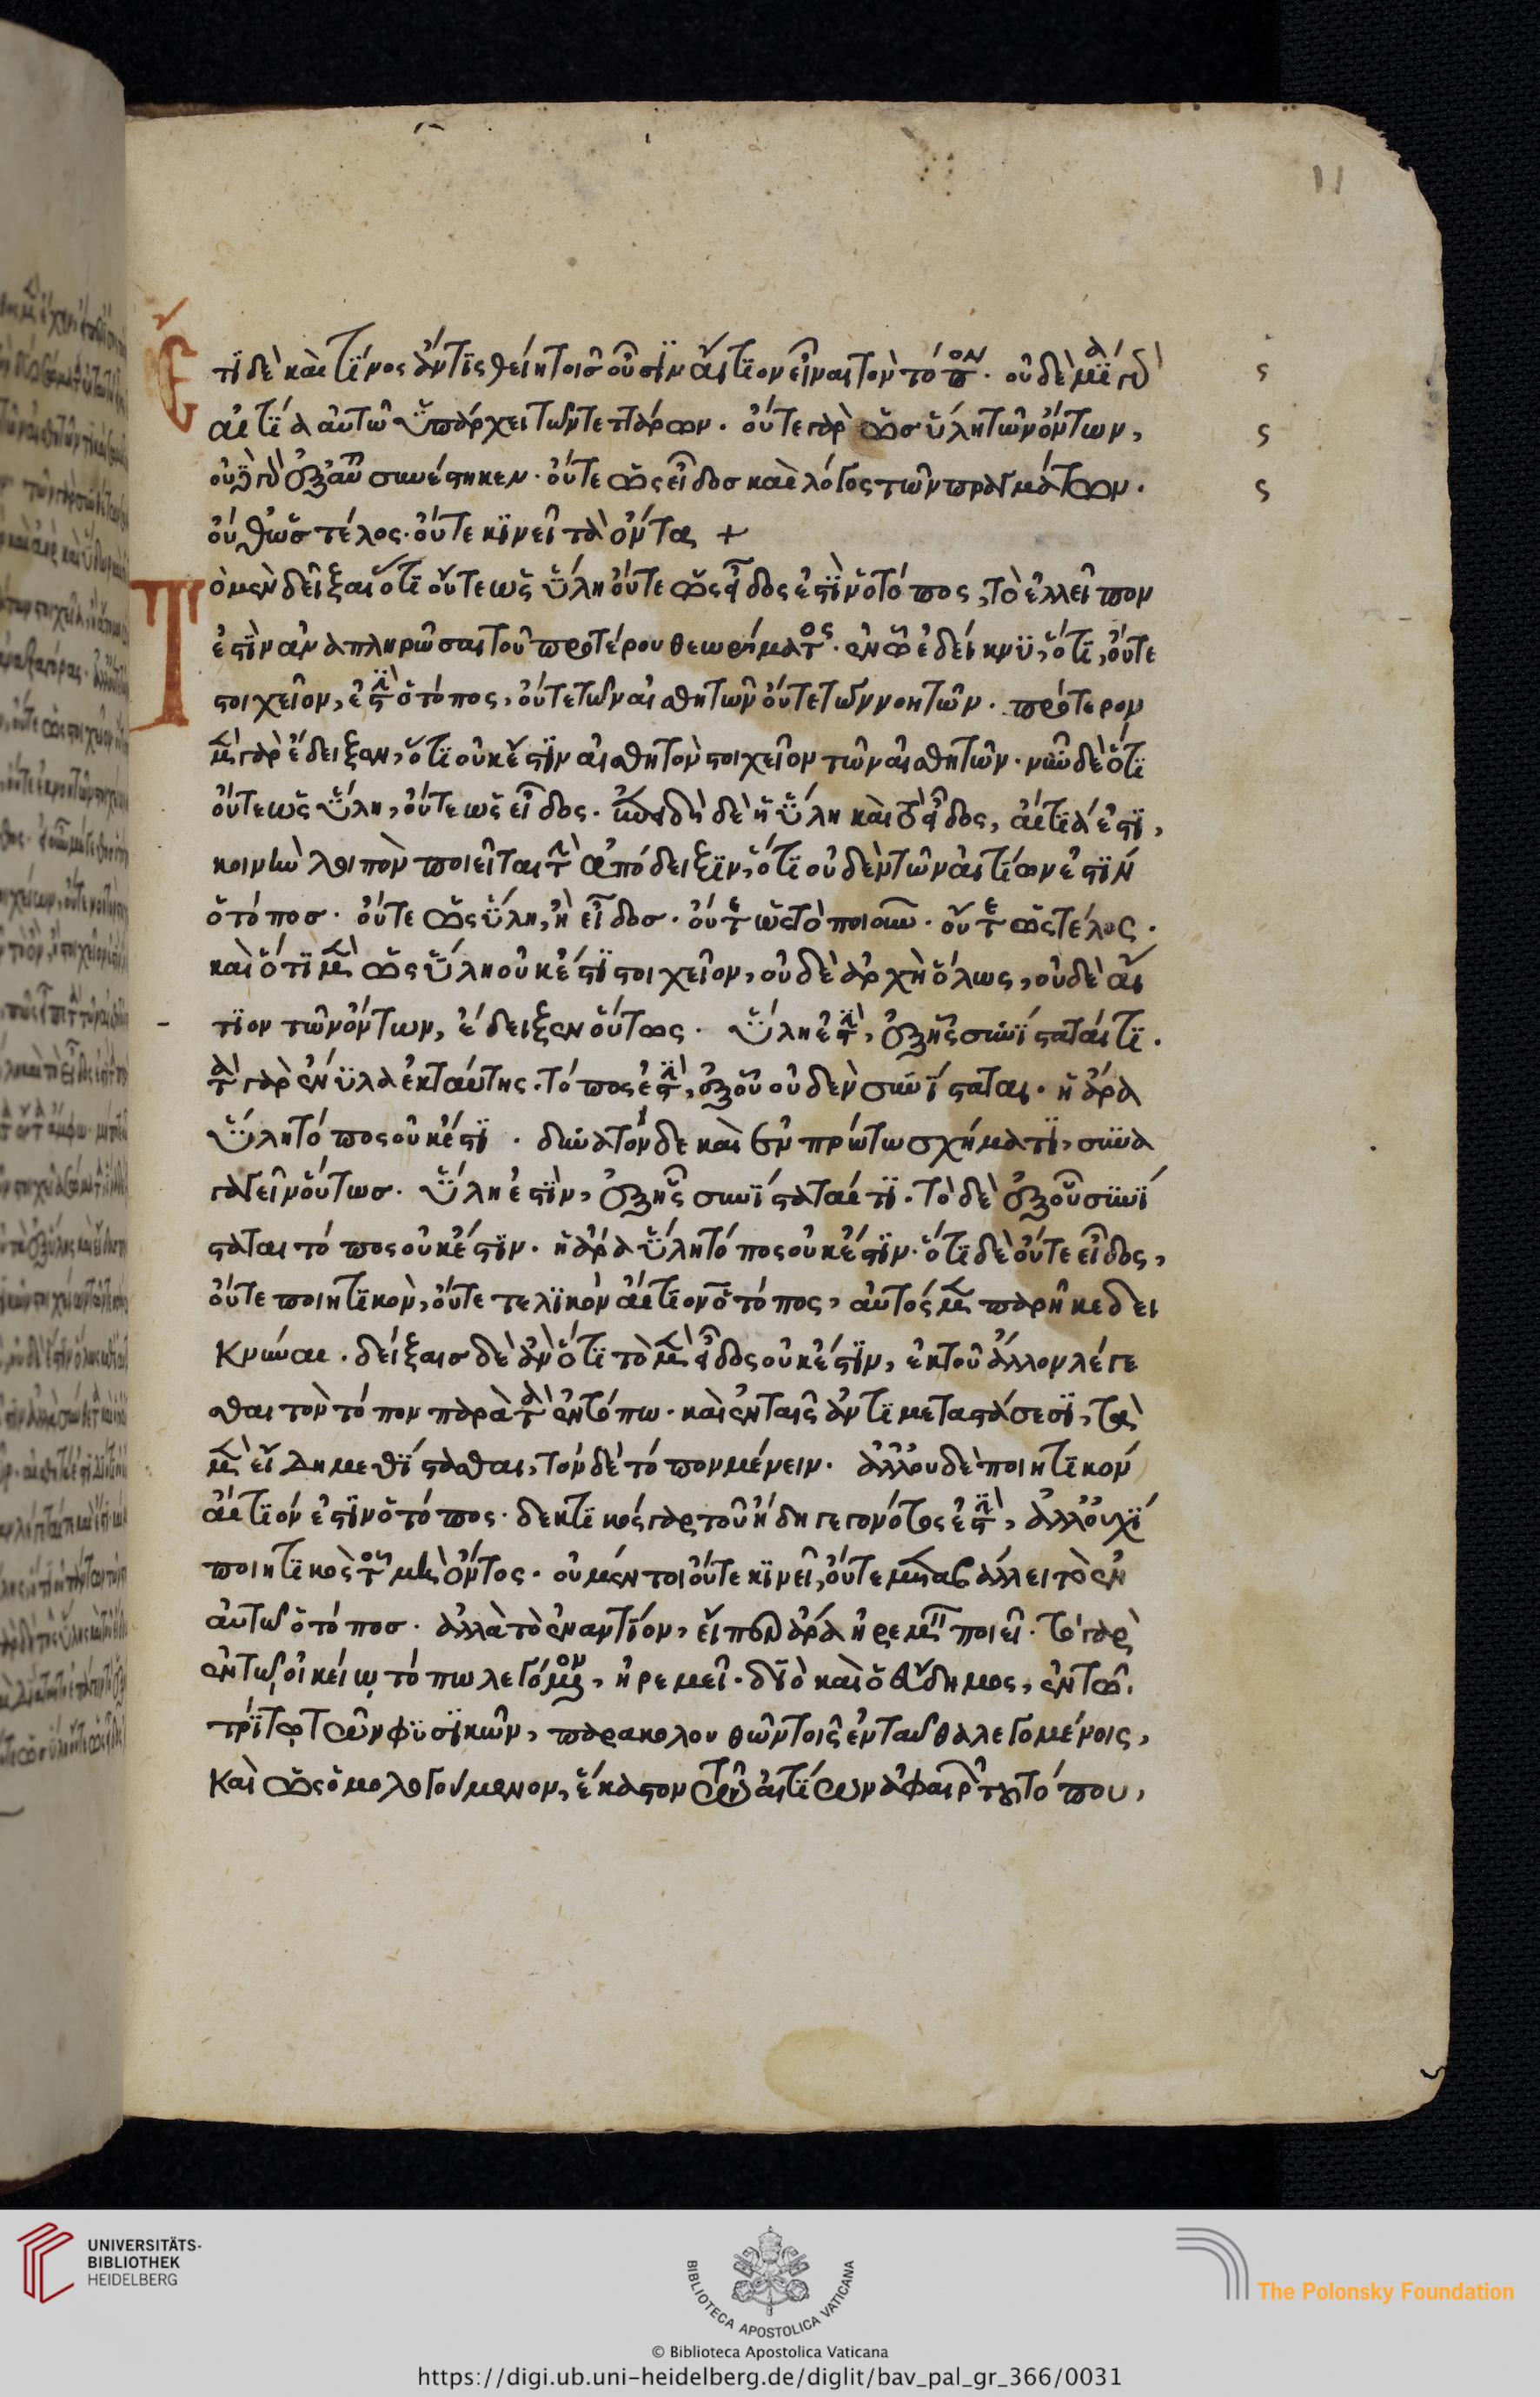 11
Ἔτι δὲ καὶ τίνος ἄν τις θείη τοῖς οὖσιν αἴτιον εἶναι τὸν τόπον. οὐδεμία γὰρ
αἰτία αὐτῷ ὑπάρχει τῶν τεττάρων. οὔτε γὰρ ὡς ὕλη τῶν ὄντων,
οὐδὲν γὰρ ἐξ αὐτοῦ συνέστηκεν. οὔτε ὡς εἶδος καὶ λόγος τῶν πραγμάτων.
οὔθ' ὡς τέλος. οὔτε κινεῖ τὰ ὄντα +
Τὸ μὲν δεῖξαι ὅτι οὔτε ὡς ὕλη οὔτε ὡς εἶδος ἐστὶν ὁ τόπος, τὸ ἐλλεῖπον
ἐστὶν ἀναπληρῶσαι τοῦ προτέρου θεωρήματος. ἐν ᾧ ἐδείκνυ, ὅτι, οὔτε
στοιχεῖον, ἐστὶν ὁ τόπος, οὔτε τῶν αἰσθητῶν οὔτε τῶν νοητῶν. πρότερον
μὲν γὰρ ἔδειξεν, ὅτι οὐκ ἔστιν αἰσθητὸν στοιχεῖον τῶν αἰσθητῶν. νῦν δὲ ὅτι
οὔτε ὡς ὕλη, οὔτε ὡς εἶδος. ἐπειδὴ δὲ ἡ ὕλη καὶ τὸ εἶδος, αἴτιά ἐστι,
κοινὴν λοιπὸν ποιεῖται τὴν ἀπόδειξιν, ὅτι οὐδὲν τῶν αἰτίων ἐστὶν
ὁ τόπος. οὔτε ὡς ὕλη, ἢ εἶδος. οὔτε ὡς τὸ ποιοῦν. οὔτε ὡς τέλος.
καὶ ὅτι μὲν ὡς ὕλη οὐκ ἔστι στοιχεῖον, οὐδὲ ἀρχὴ ὅλως, οὐδὲ αἴ
τιον τῶν ὄντων, ἔδειξεν οὕτως. ὕλη ἐστὶν, ἐξ ἧς συνίσταταί τι.
τὰ γὰρ ἔνυλα ἐκ ταύτης. τόπος ἐστὶν, ἐξ οὗ οὐδὲν συνίσταται. ἡ ἄρα
ὕλη τόπος οὐκ ἔστι. δυνατὸν δὲ καὶ ἐν πρώτω σχήματι, συνα
γαγεῖν οὕτως. ὕλη ἐστὶν, ἐξ ἧς συνίσταταί τι. τὸ δὲ ἐξ οὗ συνί
σταται τόπος οὐκ ἔστιν. ἡ ἄρα ὕλη τόπος οὐκ ἔστιν. ὅτι δὲ οὔτε εἶδος,
οὔτε ποιητικὸν, οὔτε τελικὸν αἴτιον ὁ τόπος, αὐτὸς μὲν παρῆκε δει
κνύναι. δείξαις δὲ ἂν ὅτι τὸ μὲν εἶδος οὐκ ἔστιν, ἐκ τοῦ ἄλλον λέγε
σθαι τὸν τόπον παρὰ τὰ ἐν τόπω. καὶ ἐν ταῖς ἀντιμεταστάσεσι, τὰ
μὲν εἴδη μεθίστασθαι, τὸν δὲ τόπον μένειν. ἀλλ' οὐδὲ ποιητικὸν
αἴτιόν ἐστιν ὁ τόπος. δεκτικὸς γὰρ τοῦ ἤδη γεγονότος ἐστὶν, ἀλλ' οὐχὶ
ποιητικὸς τοῦ μὴ ὄντος. οὐ μέν τοι οὔτε κινεῖ, οὔτε μεταβάλλει τὸ ἐν
αὐτῷ ὁ τόπος. ἀλλὰ τὸ ἐναντίον, εἴπερ ἄρα ἠρεμεῖν ποιεῖ. τὸ γὰρ
ἐν τῷ οἰκείῳ τόπω λεγόμενον, ἠρεμεῖ. διὸ καὶ ὁ εὔδημος, ἐν τῷ
τρίτῳ τῶν φυσικῶν, παρακολουθῶν τοῖς ἐνταῦθα λεγομένοις,
καὶ ὡς ὁμολογούμενον, ἕκαστον τῶν αἰτίων ἀφαιρεῖ τοῦ τόπου,
UNIVERSITÄTS-
BIBLIOTHEK
HEIDELBERG
BIBLIOTECA APOSTOLICA VATICANA
The Polonsky Foundation
© Biblioteca Apostolica Vaticana
https://digi.ub.uni-heidelberg.de/diglit/bav_pal_gr_366/0031